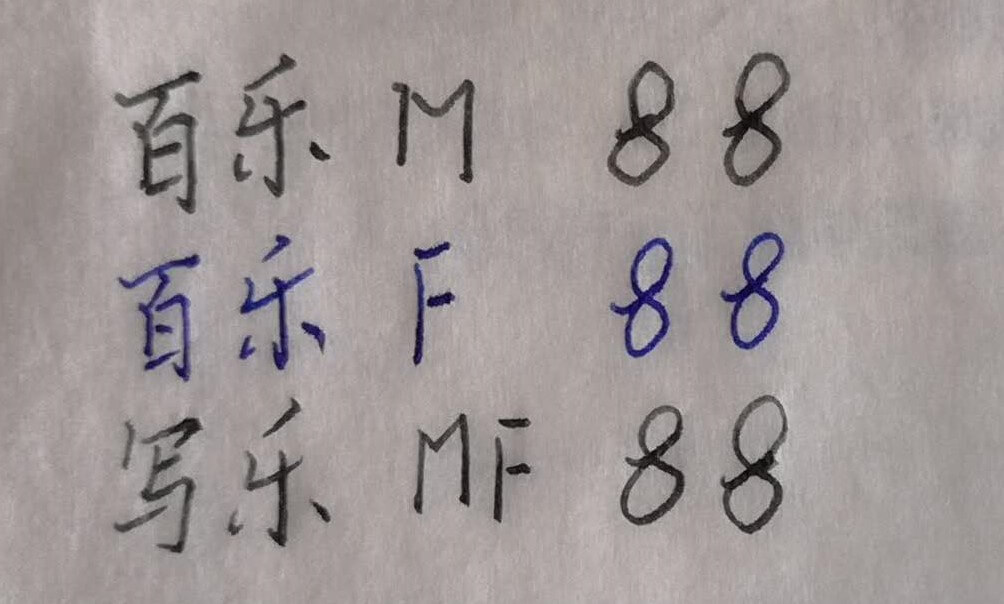 百乐 M 88
百乐 F 88
写乐 MF 88